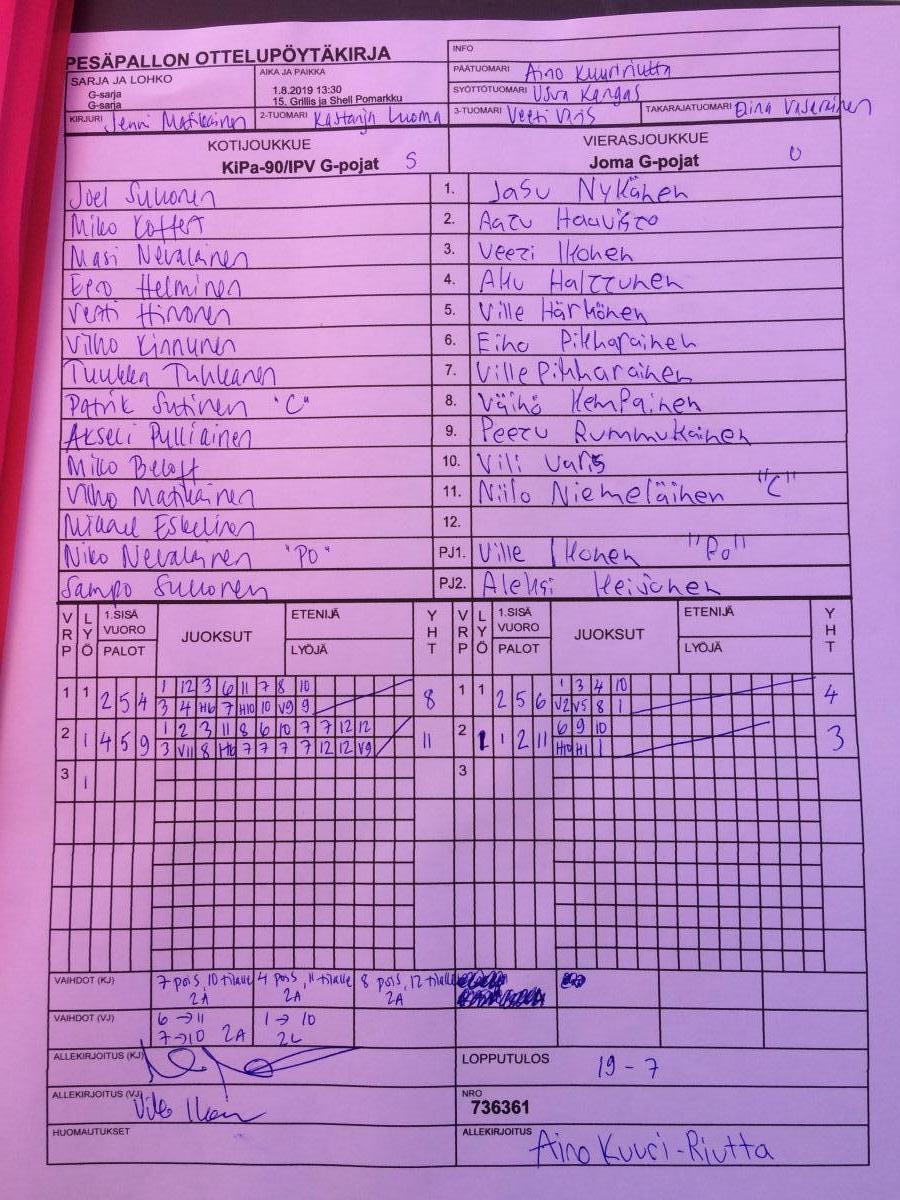 PESÄPALLON OTTELUPÖYTÄKIRJA
INFO
SARJA JA LOHKO
G-sarja
G-sarja
AIKA JA PAIKKA
1.8.2019 13:30
15. Grillis ja Shell Pomarkku
PÄÄTUOMARI Aino Kuuririutta
SYÖTTÖTUOMARI Usva Kangas
KIRJURI Jenni Matikainen 2-TUOMARI Kastanja Luoma 3-TUOMARI Veeti Viris TAKARAJATUOMARI
KOTIJOUKKUE VIERASJOUKKUE
KiPa-90/IPV G-pojat S Joma G-pojat U
Joel Sukonen 1. Jasu Nykänen
Miko Koffert 2. Aatu Haavisto
Masi Nevalainen 3. Veeti Ikonen
Eero Helminen 4. Aku Halttunen
Veeti Hirvonen 5. Ville Härkönen
Vilho Kinnunen 6. Eino Pikkarainen
Tuukka Tuhkanen 7. Ville Pikkarainen
Patrik Sutinen "C" 8. Väinö Kempainen
Akseli Pulliainen 9. Peetu Rummukainen
Miko Beloff 10. Vili Varis
Vilho Matikainen 11. Niilo Niemeläinen "C"
Mikael Eskelinen 12.
Niko Nevalainen "PO" PJ1. Ville Ikonen "Po"
Sampo Sukonen PJ2. Aleksi Heiskanen
VRP LYÖ 1.SISÄ VUORO PALOT JUOKSUT ETENIJÄ LYÖJÄ YHT VRP LYÖ 1.SISÄ VUORO PALOT JUOKSUT ETENIJÄ LYÖJÄ YHT
1 1 2 5 4 1 12 3 6 11 7 8 10 8 1 1 2 5 6 1 3 4 10 4
3 4 H6 7 H10 10 V9 9 V2 V5 8 1
2 1 4 5 9 1 2 3 11 8 6 10 7 7 12 12 11 2 1 1 2 11 6 9 10 3
3 V11 8 H6 7 7 7 7 12 12 V9 H10 H1 1
3 1 3
VAIHDOT (KJ) 7 pois, 10 tilalle 4 pois, 11 tilalle 8 pois, 12 tilalle
2A 2A 2A
VAIHDOT (VJ) 6 → 11 1 → 10
7 → 10 2A 2L
ALLEKIRJOITUS (KJ) LOPPUTULOS 19 - 7
ALLEKIRJOITUS (VJ) NRO
736361
HUOMAUTUKSET ALLEKIRJOITUS Aino Kuuri-Riutta